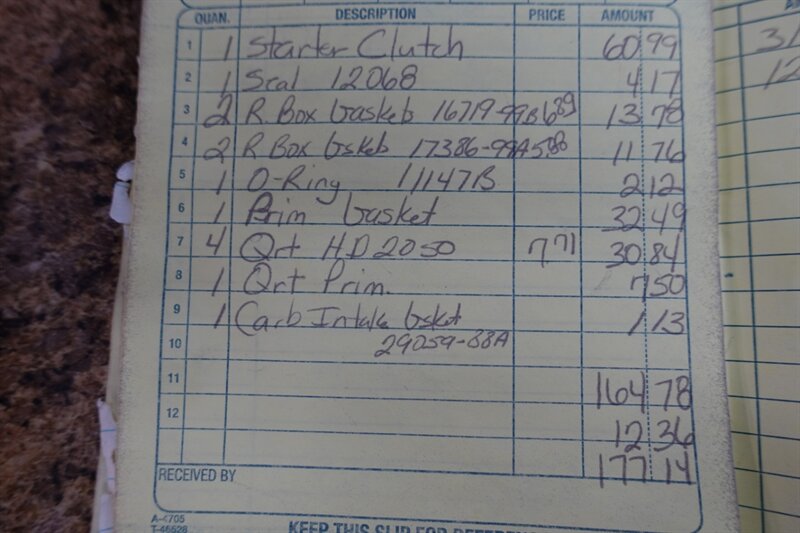 QUAN. DESCRIPTION PRICE AMOUNT
1 1 Starter Clutch 60 99
2 1 Seal 12068 4 17
3 2 R. Box Gaskets 16719-99B 6 89 13 78
4 2 R Box Gskets 17386-99A 5 88 11 76
5 1 O-Ring 11147B 2 12
6 1 Prim Gasket 32 49
7 4 Qrt HD 2050 7 71 30 84
8 1 Qrt Prim. 7 50
9 1 Carb Intake Gsket 1 13
10 29059-88A
11 164 78
12 12 36
177 14
RECEIVED BY
A-4705
T-46528
KEEP THIS SLIP FOR REFERENCE